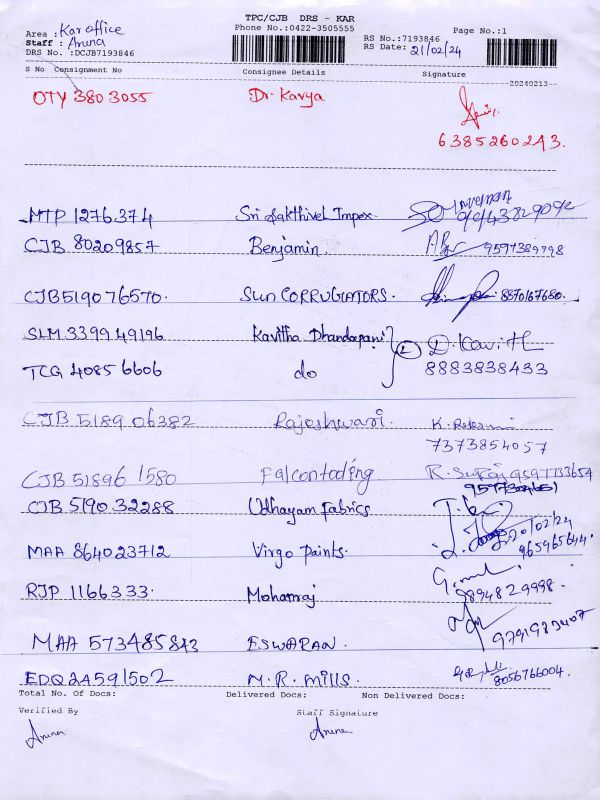 TPC/CJB DRS - KAR
Phone No.:0422-3505555
Page No.:1
Area : Kar office
Staff : Aruna
DRS No. :DCJB7193846
RS No.:7193846
RS Date: 21/02/24
S No Consignment No Consignee Details Signature
20240213
OTY 3803055 Dr. Kavya
6385260243.
MTP 1276374 Sri Sakthivel Impex.
CJB 80209857 Benjamin. 9597389798
CJB519076570. Sun CORRUGATORS. 8870167680.
SLM 339949196 Kavitha Dhandapani
TCG 40856606 do 2 8883838433
CJB 518906382 Rajeshwari.
7373854057
CJB 518961580 Falcontading
CJB 519032288 Udhayam fabrics
20/02/24
MAA 864023712 Virgo Paints.
RJP 1166333. Mohanraj 9894829998.
MAA 573485843 ESWARAN.
EDQ24591502 M.R. Mills. 8056766004.
Total No. Of Docs: Delivered Docs: Non Delivered Docs:
Verified By Staff Signature
Aruna Aruna